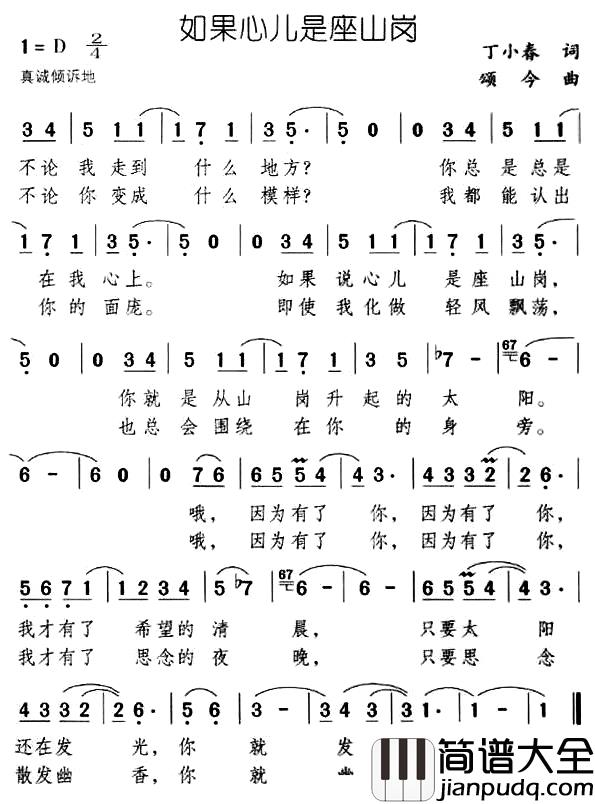 如果心儿是座山岗
1=D 2/4
丁小春 词
真诚倾诉地
颂今 曲
3 4 | 5 1 1 | 1 7 1 | 3 5· | 5 0 | 0 3 4 | 5 1 1 |
不论 我走到 什么 地方? 你总 是总是
不论 你变成 什么 模样? 我都 能认出
1 7 1 | 3 5· | 5 0 | 0 3 4 | 5 1 1 | 1 7 1 | 3 5· |
在我 心上。 如果 说心儿 是座 山岗,
你的 面庞。 即使 我化做 轻风 飘荡,
5 0 | 0 3 4 | 5 1 1 | 1 7 1 | 3 5 | ♭7 - | 67 6 - |
你就 是从山 岗升 起的 太 阳。
也总 会围绕 在你 的身 旁。
6 - | 6 0 | 0 7 6 | 6 5 5 4 | 4 3· | 4 3 3 2 | 2 6· |
哦, 因为有了 你, 因为有了 你,
哦, 因为有了 你, 因为有了 你,
5 6 7 1 | 1 2 3 4 | 5 ♭7 | 67 6 - | 6 - | 6 5 5 4 | 4 3· |
我才有了 希望的 清 晨, 只要太 阳
我才有了 思念的 夜 晚, 只要思 念
4 3 3 2 | 2 6· | 5 6· | 3 - | 3 4 3 2 | 3 1· | 1 - | 1 - |
还在发 光, 你 就 发
散发幽 香, 你 就 幽
简谱大全
jianpudq.com